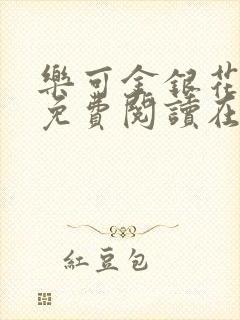 樂可金銀花
免費閱讀在
紅豆包